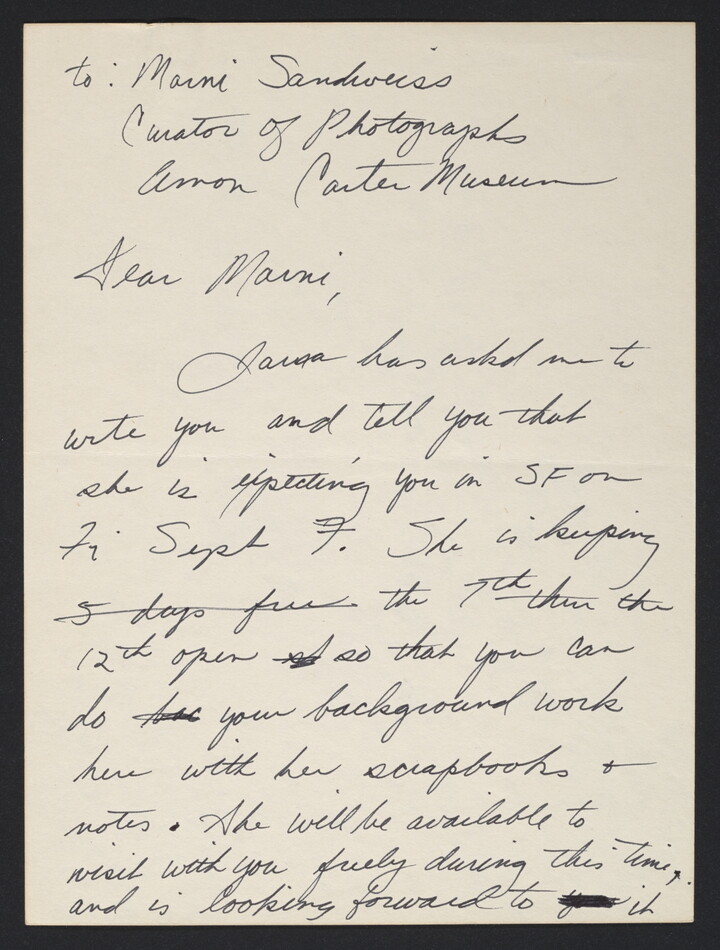 to: Marni Sandweiss
Curator of Photographs
Amon Carter Museum
Dear Marni,
Laura has askd me to
write you and tell you that
she is expecting you in SF on
Fri Sept 7. She is keeping
5 days free the 7th thru the
12th open so that you can
do your background work
here with her scrapbooks +
notes. She will be available to
visit with you freely during this time,
and is looking forward to it